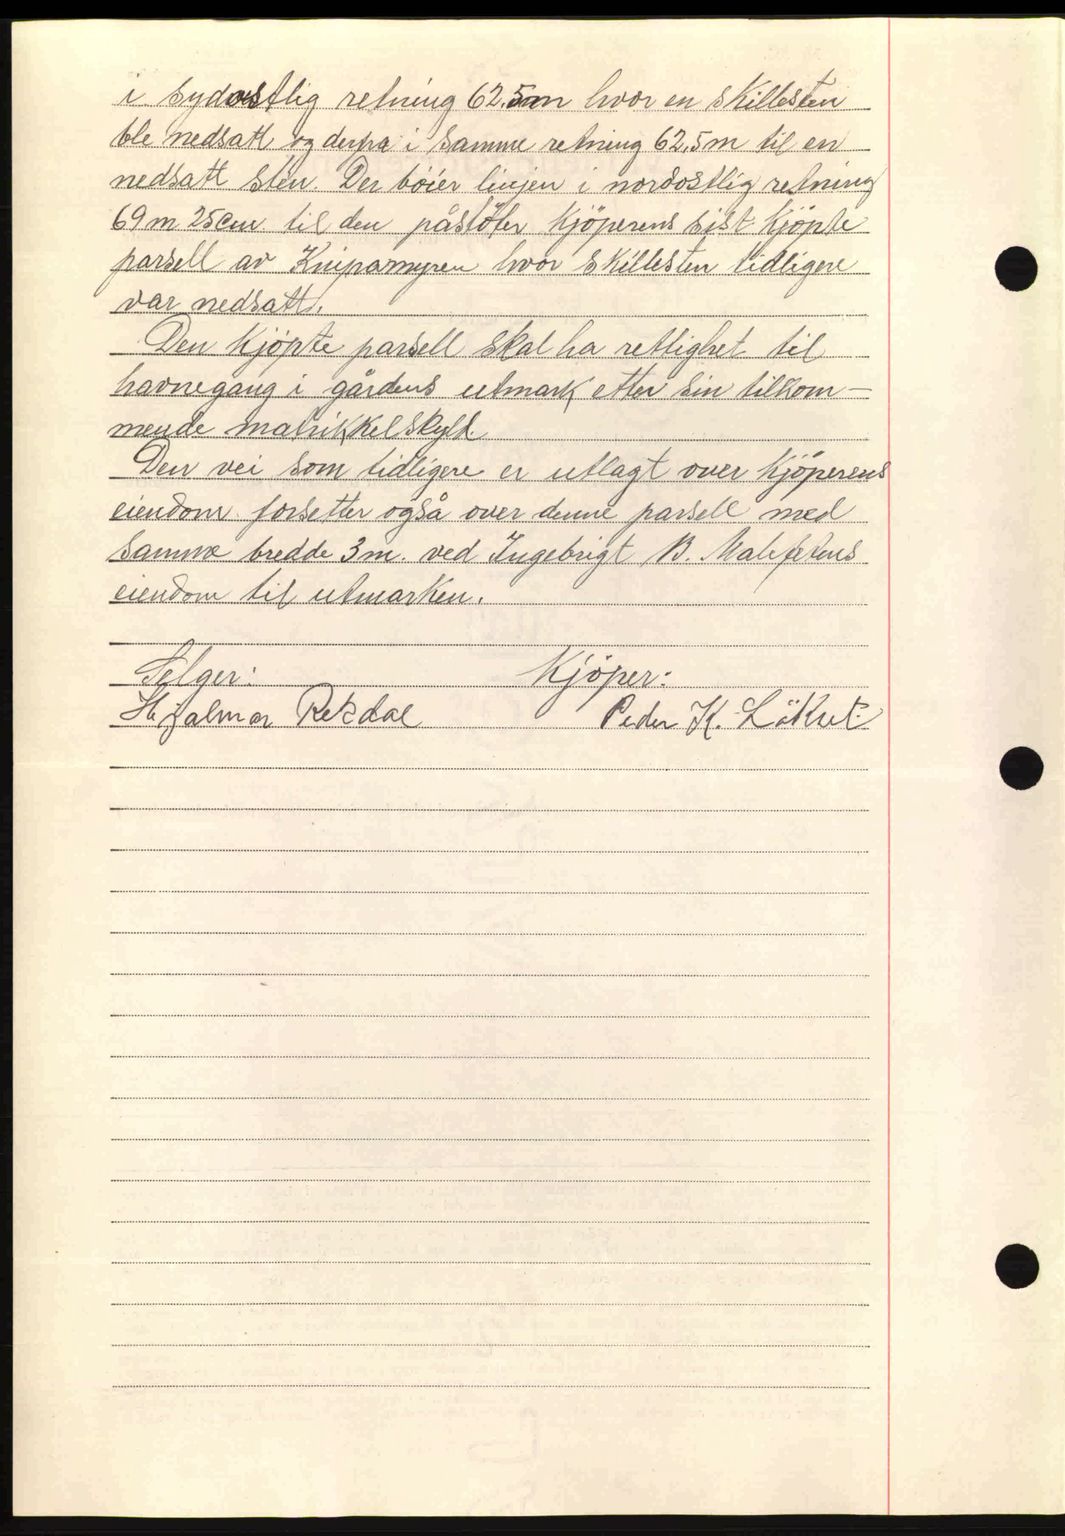 i sydøstlig retning 62.5m hvor en skillesten
ble nedsatt og derfra i samme retning 62.5m til en
nedsatt sten. Der böier linjen i nordostlig retning
69m 25cm til den påstöter kjöperens sist kjöpte
parsell av Kniparmyren hvor skillesten tidligere
var nedsatt.
Den kjöpte parsell skal ha rettighet til
havnegang i gårdens utmark etter sin tilkom-
mende matrikkelskyld.
Den vei som tidligere er utlagt over kjöperens
eiendom forsetter også over denne parsell med
samme bredde 3m. ved Ingebrigt B.
eiendom til utmarken.
Selger: Kjöper:
Hjalmar Rekdal Peder K.